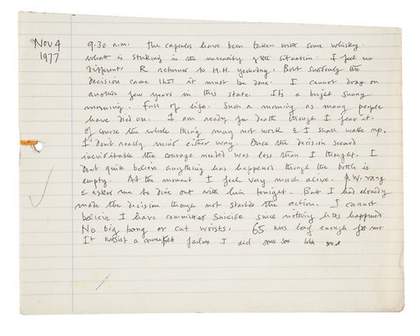 Nov 4
1977
9.30 a.m. The capsules have been taken with some whisky.
What is striking is the unreality of the situation. I feel no
different. R returned to M.H. yesterday. But suddenly the
decision came that it must be done. I cannot drag on
another few years in this state. It's a bright sunny
morning. Full of life. Such a morning as many people
have died on. I am ready for death though I fear it.
Of course the whole thing may not work & I shall wake up.
I don't really mind either way. Once the decision seemed
inevitable the courage needed was less than I thought. I
don't quite believe anything has happened though the bottle is
empty. At the moment I feel very much alive. P.W. rang
& asked me to dine out with him tonight. But I had already
made the decision though not started the action. I cannot
believe I have committed suicide since nothing has happened
No big bang or cut wrists. 65 was long enough for me
It wasn't a complete failure I did some